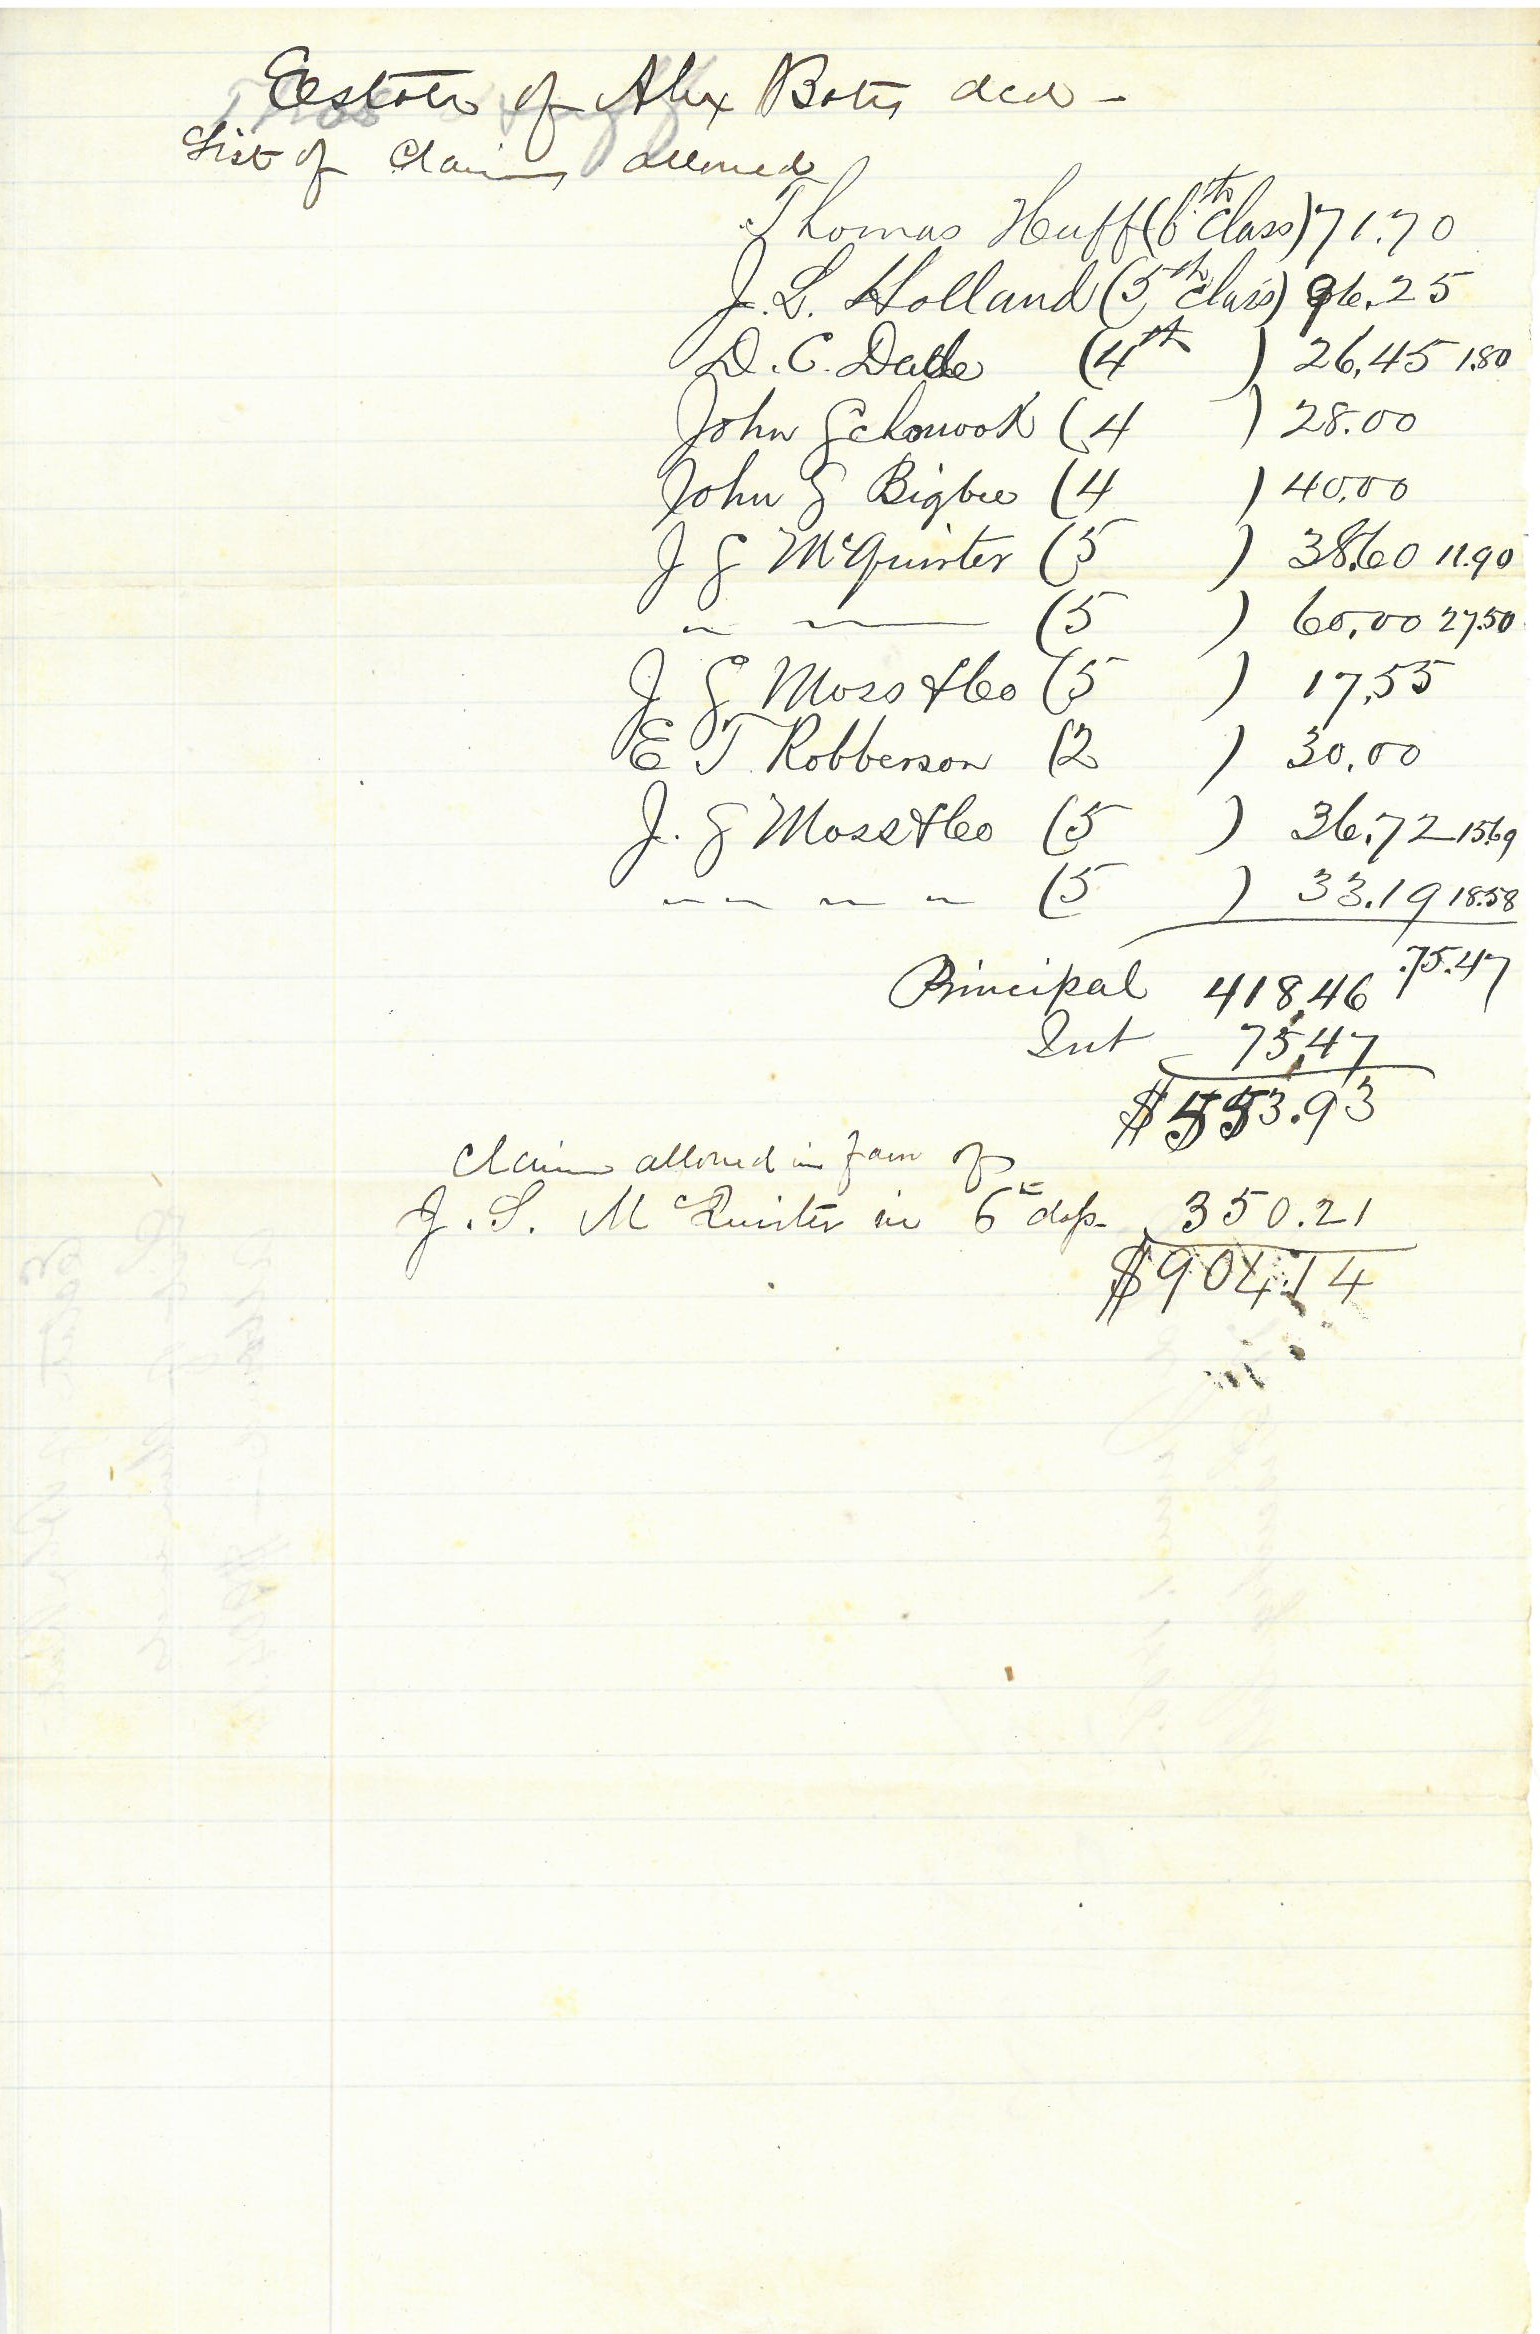 Estate of Alex Bates decd -
List of Claims allowed
Thomas Huff (6th class) 71.70
J. L. Holland (5th class) 96.25
D. C. Dade (4th ) 26.45 1.80
John Schmook (4 ) 28.00
John S Bigbee (4 ) 40.00
J S McQuirter (5 ) 38.60 11.90
" " (5 ) 60.00 27.50
J S Moss & Co (5 ) 17.55
E T Robberson (2 ) 30.00
J. S Moss & Co (5 ) 36.72 15.69
" " " " (5 ) 33.19 18.58
Principal 418.46 75.47
Int 75.47
$553.93
Claim allowed in favor of
J. S. McQuirter in 6th class 350.21
$904.14